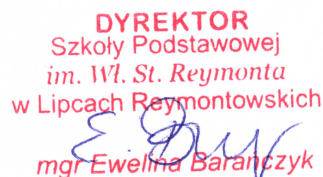 DYREKTOR
Szkoły Podstawowej
im. Wł. St. Reymonta
w Lipcach Reymontowskich
mgr Ewelina Barańczyk